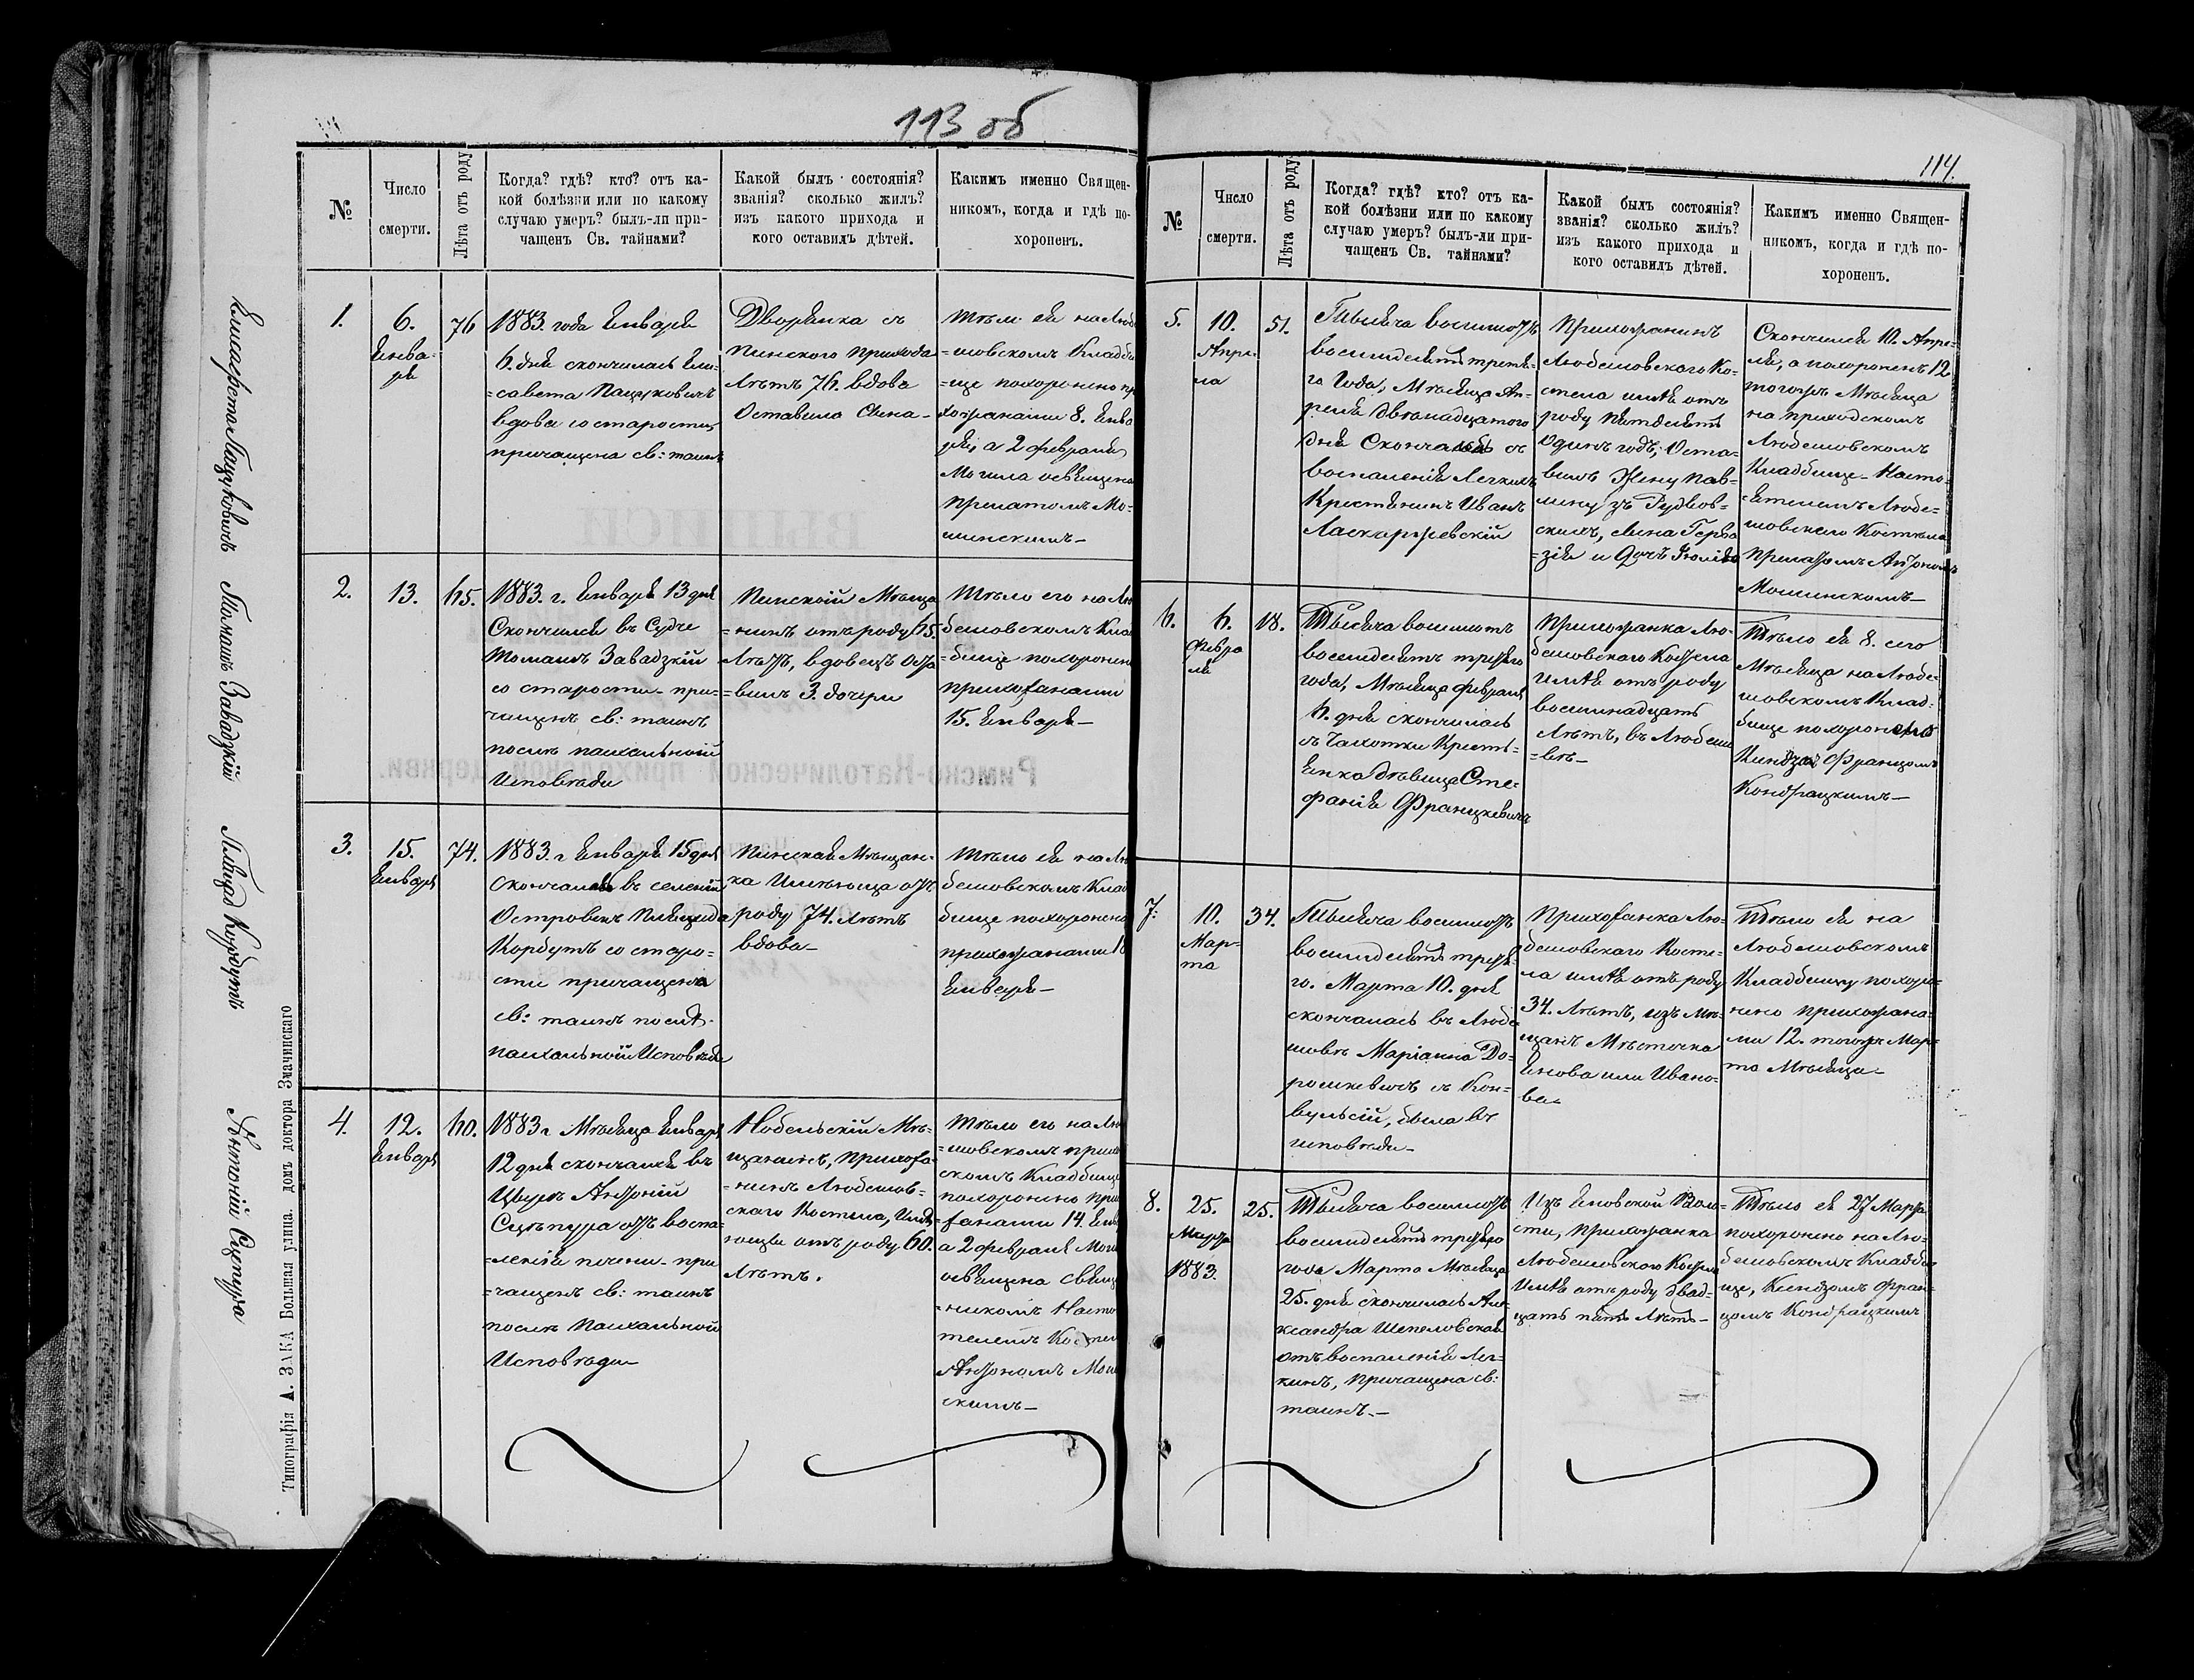 113 об
№
Число
смерти.
Лѣта отъ роду
Когда? гдѣ? кто? отъ ка-
кой болѣзни или по какому
случаю умеръ? былъ-ли при-
чащенъ Св. тайнами?
Какой былъ состоянія?
званія? сколько жилъ?
изъ какого прихода и
кого оставилъ дѣтей.
Какимъ именно Священ-
никомъ, когда и гдѣ по-
хороненъ.
1.
6.
Янва-
ря
76
1883. года Января
6. дня скончилась Ели-
=савета Пацуковичъ
вдова со старости
причащена св: таинъ
Дворянка съ
Пинского Прихода
Лѣтъ 76. вдова
Оставила Сына-
Тѣло ея на Любе
=шовскомъ Кладби
=ще похоронено пр
хожанами 8. Янва
ря, а 2 февраля
Могила освящена
Прелатомъ Мо-
шинскимъ-
2.
13.
65.
1883. г. Января 13 дня
Скончился въ Судче
Томашъ Завадзкій
со старости - при-
чащенъ св: таинъ
послѣ пасхальной
Исповѣди
Пинскій Мѣща
=нинъ отъ роду 65.
Лѣтъ, вдовецъ Оста
=вилъ 3. дочери
Тѣло его на Лю
бешовскомъ Кла
=бище похоронено
прихожанами
15. Января-
3.
15.
Января
74.
1883. г Января 15 дня
Скончалась въ селеніи
Островкъ Плацида
Корбутъ со старо-
сти причащена
св: таинъ послѣ-
пасхальной Исповѣди
Пинская Мѣщан-
ка Имѣюща отъ
роду 74. лѣтъ
вдова-
Тѣло ея на Лю
бешовскомъ Клад
бище похоронено
прихожанами 18
Января-
4.
12.
Января
60.
1883 г Мѣсяца Января
12 дня скончался въ
Цвѣръ Антоній
Сцѣпура отъ воспа-
=ленія печени - при
=чащенъ св: таинъ
послѣ Пасхальной
Исповѣди
Нобельскій Мѣ-
щанинъ, Прихожа-
=нинъ Любешов-
скаго Костела, Имѣ
ющи отъ роду 60.
Лѣтъ.
Тѣло его на Лю
=шовскомъ прихо
скомъ Кладбище
похоронено при
жанами 14. Янв
а 2 февраля Моги
освящена Священ
=никомъ Насто
телемъ Костел
Антономъ Мош
скимъ-
Елисаверта Пацуковичъ
Томашъ Завадзкій
Плацида Корбутъ
Антоній Сцепура
Типографія А. ЗАКА Большая улица. домъ доктора Значинскаго
114.
№
Число
смерти.
Лѣта отъ роду
Когда? гдѣ? кто? отъ ка-
кой болѣзни или по какому
случаю умеръ? былъ-ли при-
чащенъ Св. тайнами?
Какой былъ состоянія?
званія? сколько жилъ?
изъ какого прихода и
кого оставилъ дѣтей.
Какимъ именно Священ-
никомъ, когда и гдѣ по-
хороненъ.
5.
10.
Апрѣ-
ла
51.
Тысяча восимсотъ
восимдесятъ третья-
го Года, Мѣсяца Ап-
реля двѣнадцатого
дня Скончался съ
воспаленія Легкихъ
Крестянинъ Иванъ
Ласкаржевскій
Прихожанинъ
Любешовского Ко-
стела имѣя отъ
роду пятдесятъ
Одинъ годъ; Оста-
вилъ Жену Пав-
лину зъ Рудков-
скихъ, Сына Герва
=зія и Дочъ Юлію
Скончился 10. Апре-
ля, а похороненъ 12
тогожъ Мѣсяца
на приходскомъ
Любешовскомъ
Кладбище- Насто-
=ятелемъ Любе-
шовскаго Костела
Прелатомъ Антономъ
Мошинскомъ-
6.
6.
Февра
ля
18.
Тысяча восимсотъ
восимдесятъ третяго
года, Мѣсяца февраля
6. дня скончилась
съ Чахотки Кресть-
янка дѣвица Сте-
фанія Францкевичъ
Прихожанка Лю-
бешовского Костела
имѣя отъ роду
восимнадцать
Лѣтъ, въ Любеши
=вѣ-
Тѣло ея 8. сего
Мѣсяца на Любе-
шовскомъ Клад-
бище похоронено
Киндзомъ Францомъ
Кондрацкимъ-
7.
10.
Мар-
та
34.
Тысяча восимсотъ
восимдесятъ третья-
го. Марта 10. дня
скончалась въ Любе
шовѣ Маріанна До-
рошкевичъ съ Кон-
вульсій, была въ
исповѣди-
Прихожанка Лю-
бешовскаго Косте-
ла имѣя отъ роду
34. Лѣтъ, изъ Мѣ-
щанъ Мѣсточка
Янова или Ивано-
ва
Тѣло ея на
Любешовскомъ
Кладбищу похоро-
нено прихожана-
ми 12. тогожъ Мар-
та Мѣсяца-
8.
25.
Марта
1883.
25.
Тысяча восимсотъ
восимдесятъ третяго
года Марта Мѣсяца
25. дня скончилась Але-
ксандра Шепеловская
отъ воспаленія Лег-
кихъ, Причащена св:
таинъ.-
Изъ Яновской Воло-
сти, Прихожанка
Любешовского Костела
имѣя отъ роду двад-
цать пять Лѣтъ-
Тѣло ея 27 Марта
похоронено на Лю-
бешовскомъ Кладби
ще, Ксендзомъ Фран-
цомъ Кондрацкимъ